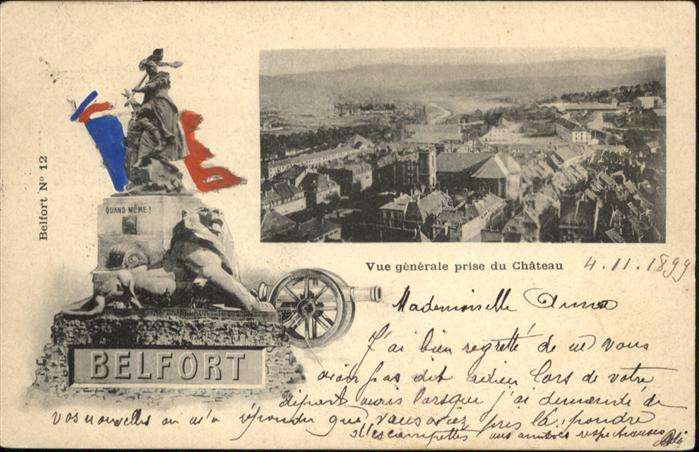 Belfort Nº 12
QUAND MÊME!
BELFORT
Vue générale prise du Château
4.11.1899
Mademoiselle Anna
J'ai bien regretté de ne vous
avoir pas dit adieu lors de votre
départ mais lorsque j'ai demandé de
vos nouvelles on m'a répondu que vous aviez pris la poudre
d'escampettes mes amitiés respectueuses